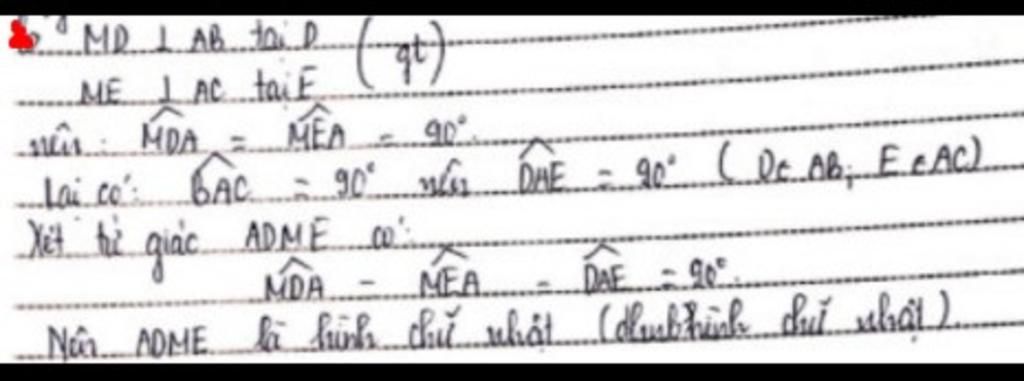 MD ⊥ AB tại D (gt)
ME ⊥ AC tại E
nên: \widehat{MDA} = \widehat{MEA} = 90°.
Lại có: \widehat{BAC} = 90° nên \widehat{DAE} = 90° (D ∈ AB; E ∈ AC)
Xét tứ giác ADME có:
\widehat{MDA} = \widehat{MEA} = \widehat{DAE} = 90°.
Nên ADME là hình chữ nhật (dhnb hình chữ nhật).